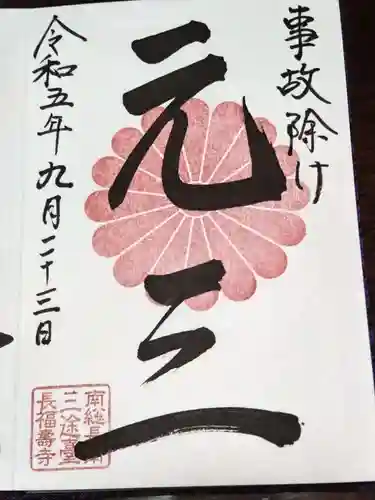 事故除け
元三
令和五年九月二十三日
三途臺
長福壽寺